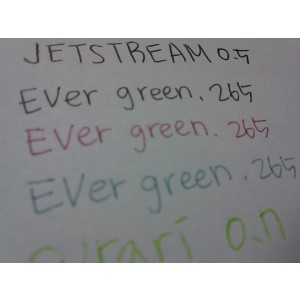 JETSTREAM 0.5
Ever green. 265
Ever green. 265
Ever green. 265